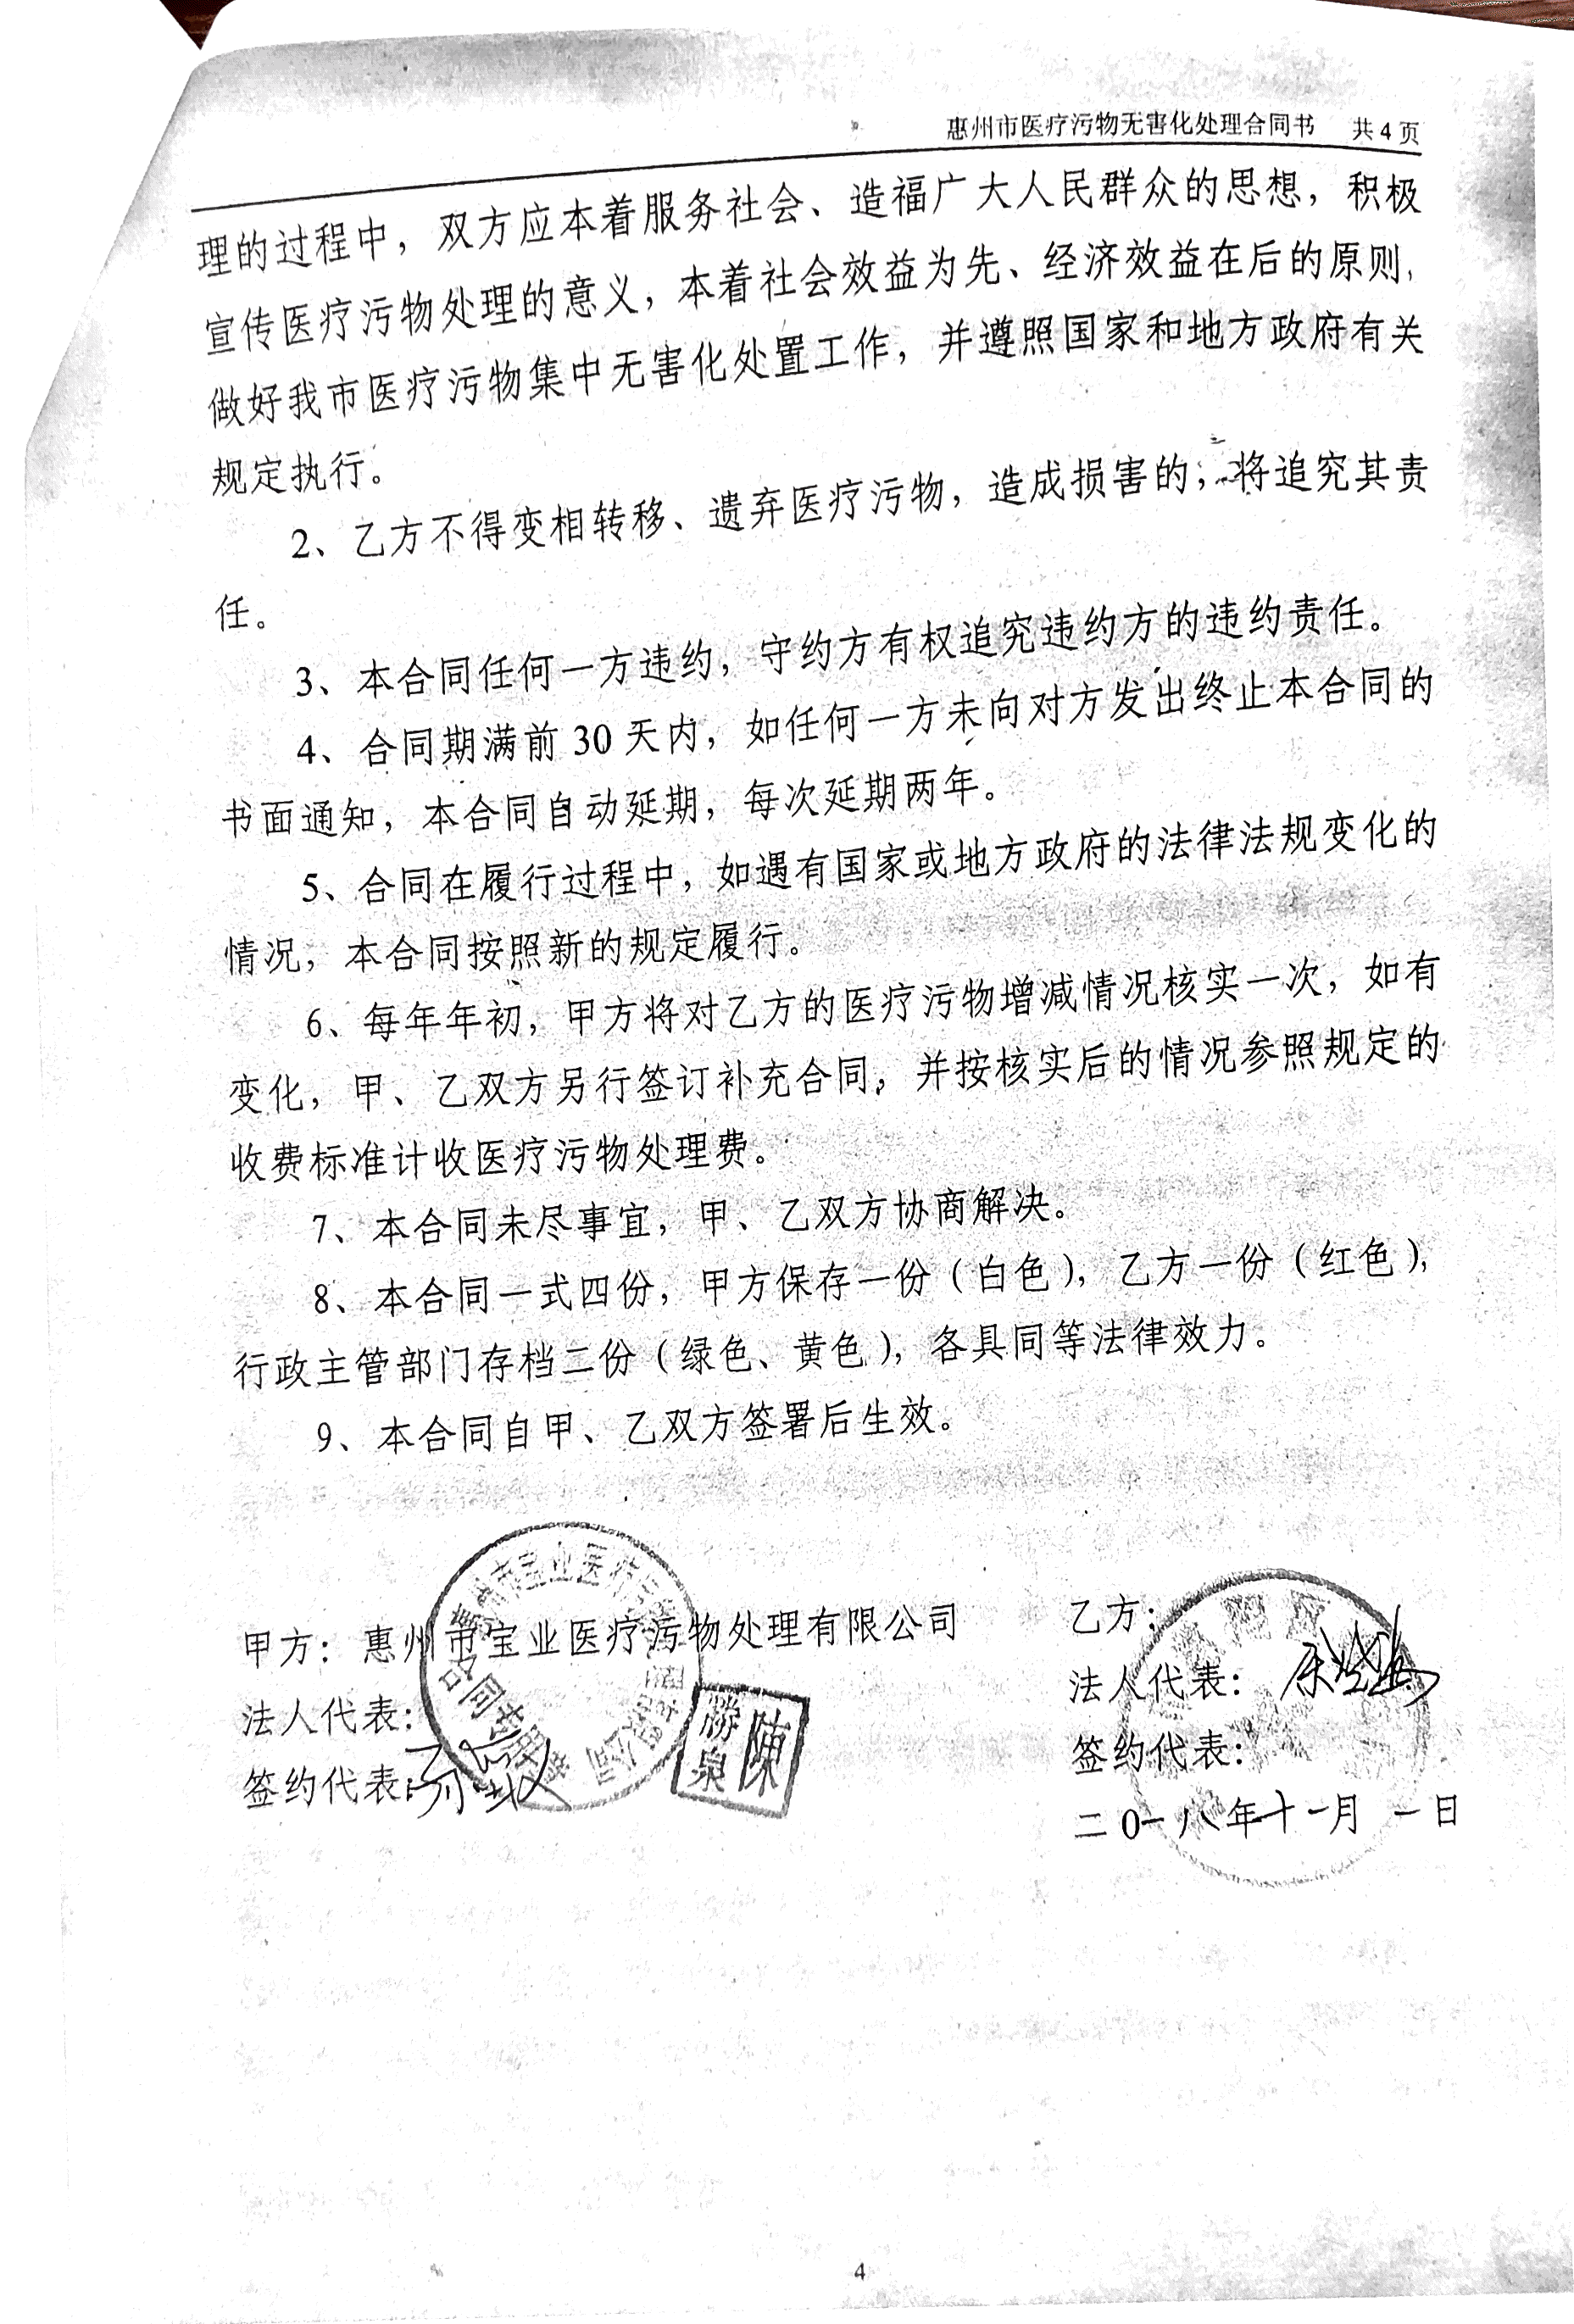 惠州市医疗污物无害化处理合同书 共4页
理的过程中，双方应本着服务社会、造福广大人民群众的思想，积极
宣传医疗污物处理的意义，本着社会效益为先、经济效益在后的原则，
做好我市医疗污物集中无害化处置工作，并遵照国家和地方政府有关
规定执行。
2、乙方不得变相转移、遗弃医疗污物，造成损害的，将追究其责
任。
3、本合同任何一方违约，守约方有权追究违约方的违约责任。
4、合同期满前30天内，如任何一方未向对方发出终止本合同的
书面通知，本合同自动延期，每次延期两年。
5、合同在履行过程中，如遇有国家或地方政府的法律法规变化的
情况，本合同按照新的规定履行。
6、每年年初，甲方将对乙方的医疗污物增减情况核实一次，如有
变化，甲、乙双方另行签订补充合同，并按核实后的情况参照规定的
收费标准计收医疗污物处理费。
7、本合同未尽事宜，甲、乙双方协商解决。
8、本合同一式四份，甲方保存一份（白色），乙方一份（红色），
行政主管部门存档二份（绿色、黄色），各具同等法律效力。
9、本合同自甲、乙双方签署后生效。
甲方：惠州市宝业医疗污物处理有限公司
法人代表：
签约代表：
合同专用章
陳勝泉
乙方：
法人代表：
签约代表：
二0一八年十一月 一日
4